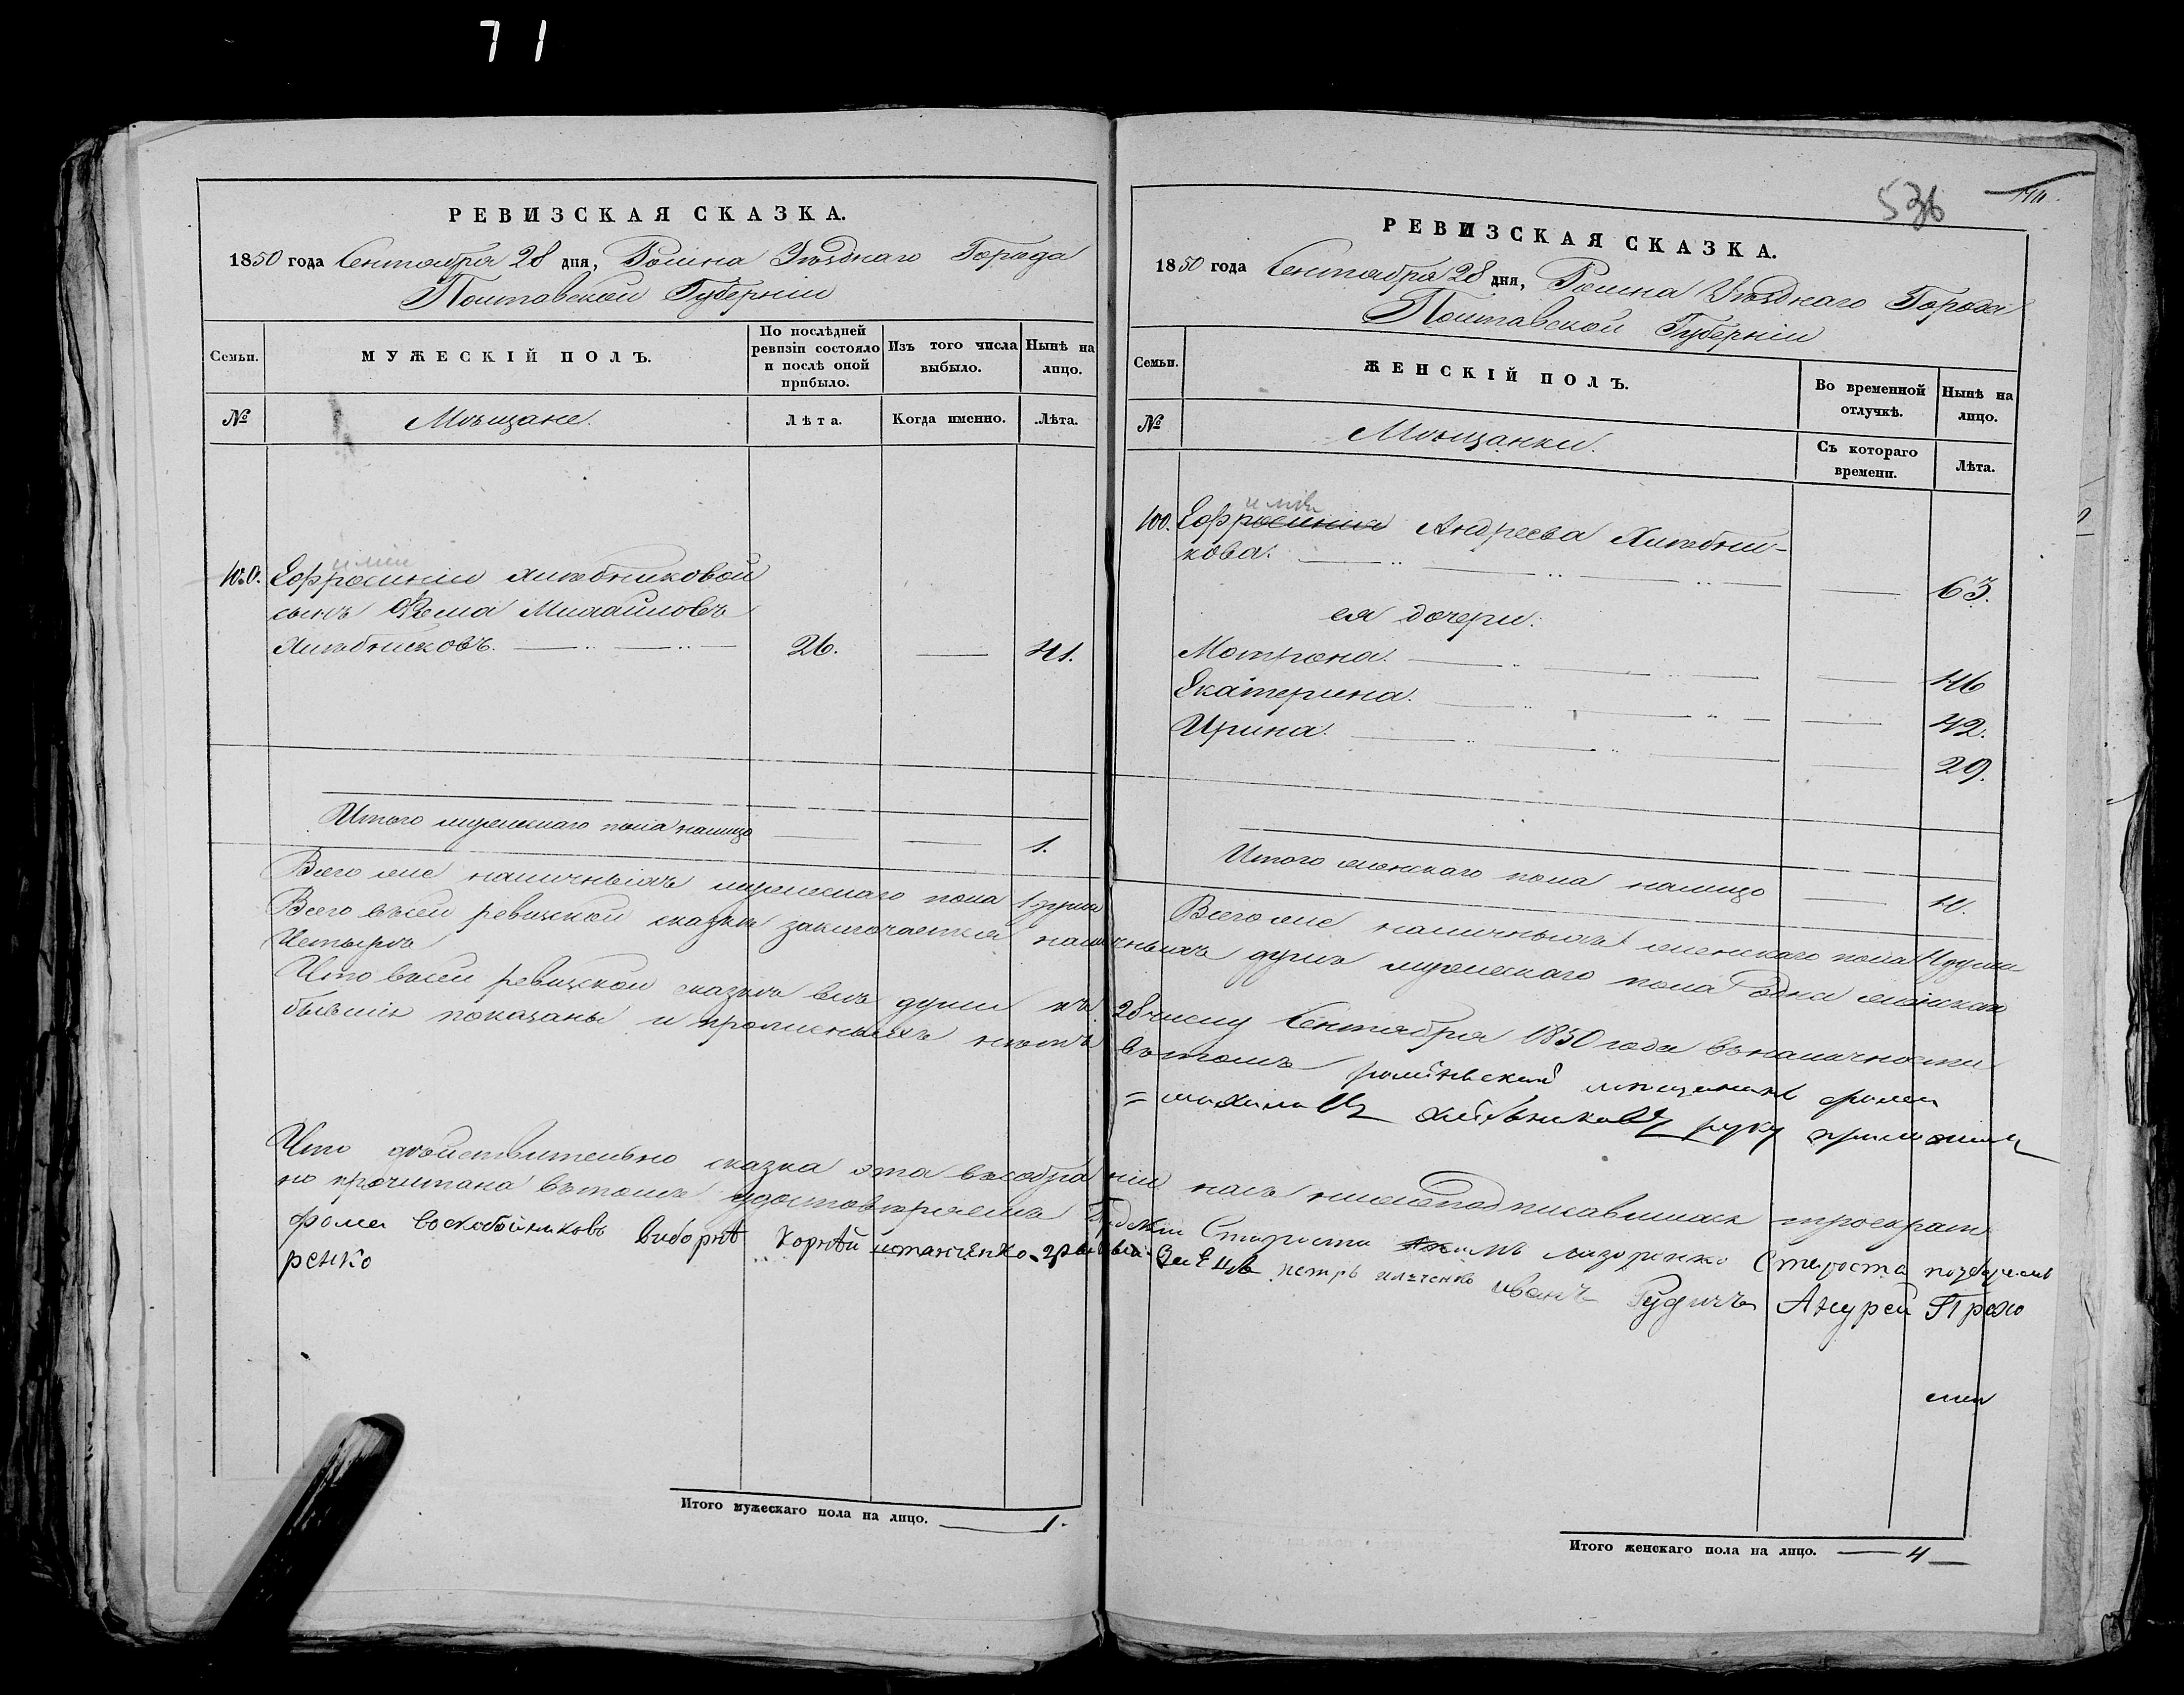 71
РЕВИЗСКАЯ СКАЗКА.
1850 года Сентября 28 дня, Ромна Уѣзднаго Города
Полтавской Губерніи
Семьи.
МУЖЕСКІЙ ПОЛЪ.
По послѣдней ревизіи состояло и послѣ оной прибыло.
Изъ того числа выбыло.
Нынѣ на лицо.
№
Мѣщане.
Лѣта.
Когда именно.
Лѣта.
100. Ефросиніи Хлѣбниковой
сынъ Фома Михайловъ
Хлѣбниковъ. 26. 41.
Итого мужескаго пола налицо 1.
Всего же наличныхъ мужескаго пола 1 душа
РЕВИЗСКАЯ СКАЗКА.
536
1850 года Сентября 28 дня, Ромна Уѣзднаго Города
Полтавской Губерніи
Семьи.
ЖЕНСКІЙ ПОЛЪ.
Во временной отлучкѣ.
Нынѣ на лицо.
№
Мѣщанки.
Съ котораго времени.
Лѣта.
100. Ефросинія Андреева Хлѣбни-
кова. 63.
ея дочери:
Мотрона. 46
Екатерина. 42.
Ирина. 29.
Итого женскаго пола налицо 4.
Всего же наличныхъ женскаго пола 4 души
Всего въ сей ревизской сказкѣ заключается наличныхъ душъ мужескаго пола одна женскаго
Четыре
Что въ сей ревизской сказкѣ всѣ души къ 28 числу Сентября 1850 года въ наличности
бывшія показаны и прописныхъ нѣтъ въ томъ роменский мещенинъ фома
михаиловъ хлебниковъ руку приложилъ
Что дѣйствительно сказка эта въ собраніи насъ нижеподписавшихся троекрат
но прочитана въ томъ удостовѣряемъ Старости лазоренко Староста
фома воскобойниковъ виборнѣ Корнѣй петръ иванъ Рудичъ Прохо
ренко
Итого мужескаго пола на лицо. 1.
Итого женскаго пола на лицо. 4